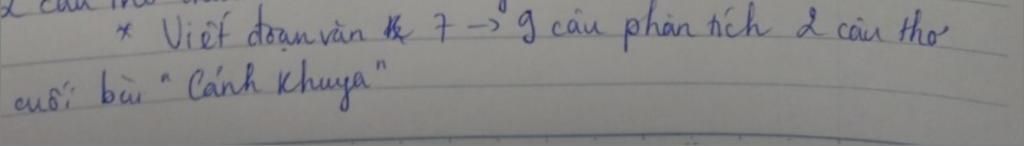 * Viết đoạn văn 7 → 9 câu phân tích 2 câu thơ
cuối bài " Cảnh khuya"